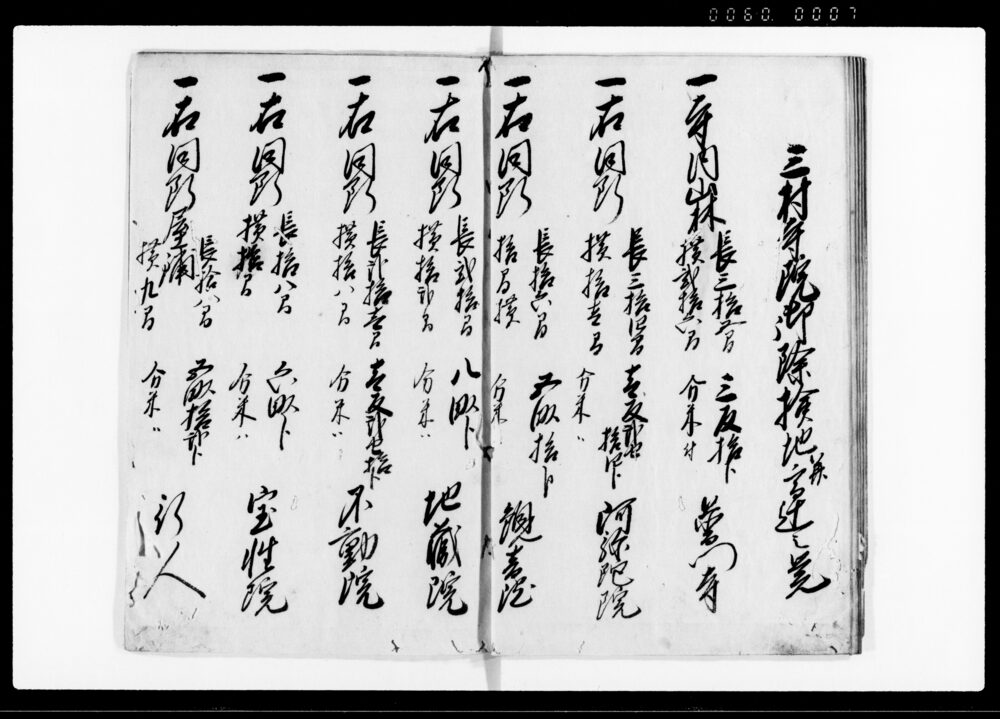 0060.0007
三村寺院御除検地并高辻之覚
一寺内林 長三拾五間 横弐拾六間 三反拾歩 分米 普門寺
一右同所 長三拾四間 横拾壱間 壱反弐畝拾四歩 分米〃 阿弥陀院
一右同所 長拾六間 横拾間 五畝拾歩 分米〃
一右同所 長弐拾間 横拾弐間 八畝歩 分米〃 地蔵院
一右同所 長弐拾壱間 横拾八間 壱反弐畝拾歩 分米〃 不動院
一右同所 長拾八間 横拾間 六畝歩 分米〃 宝性院
一右同所 屋浦 長拾八間 横九間 五畝拾弐歩 分米〃 行人